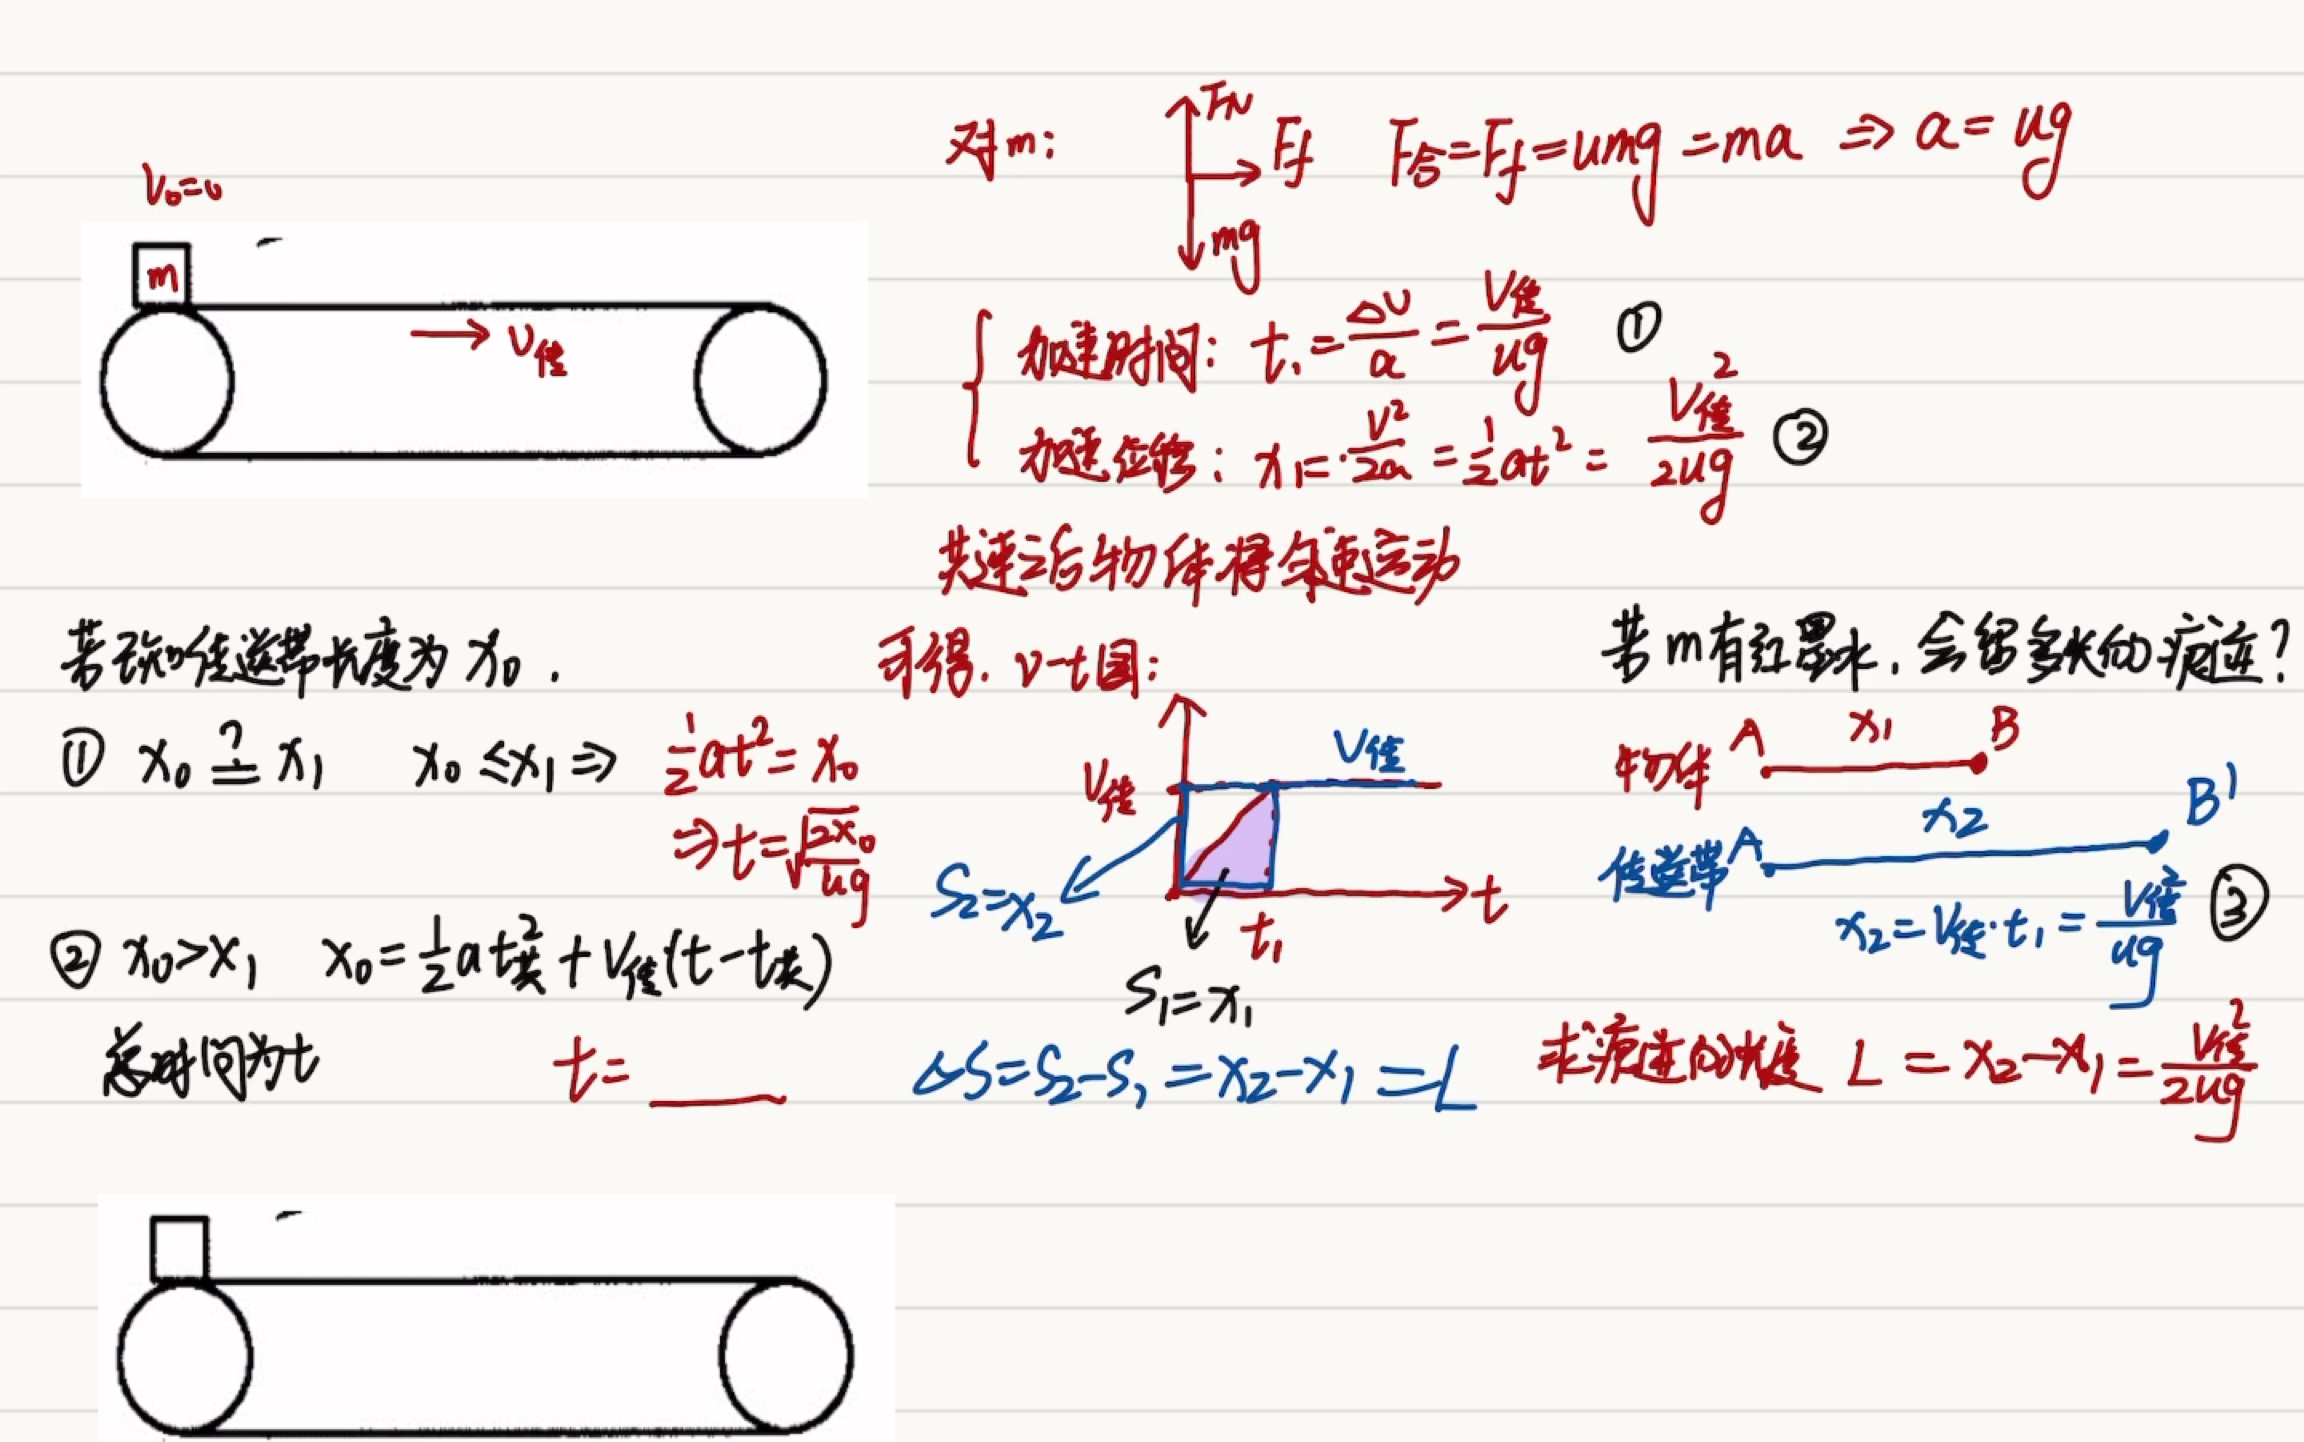 V₀=0
m
V传
对m: FN Ff mg F合=Ff=umg=ma ⇒ a=ug
加速时间: t₁=Δv/a=V传/ug ①
加速位移: x₁=v²/2a=½at²=V传²/2ug ②
共速之后物体将匀速运动
若已知传送带长度为x₀.
① x₀ ?= x₁ x₀≤x₁⇒ ½at²=x₀
⇒t=√(2x₀/ug)
② x₀>x₁ x₀=½at共²+V传(t-t共)
总时间为t t=
可得. v-t图:
V传
V传
S₂=x₂
t₁
t
S₁=x₁
ΔS=S₂-S₁=x₂-x₁=L
若m有红墨水,会留多长的痕迹?
物体 A x₁ B
传送带 A x₂ B'
x₂=V传·t₁=V传²/ug ③
求痕迹的长度 L=x₂-x₁=V传²/2ug